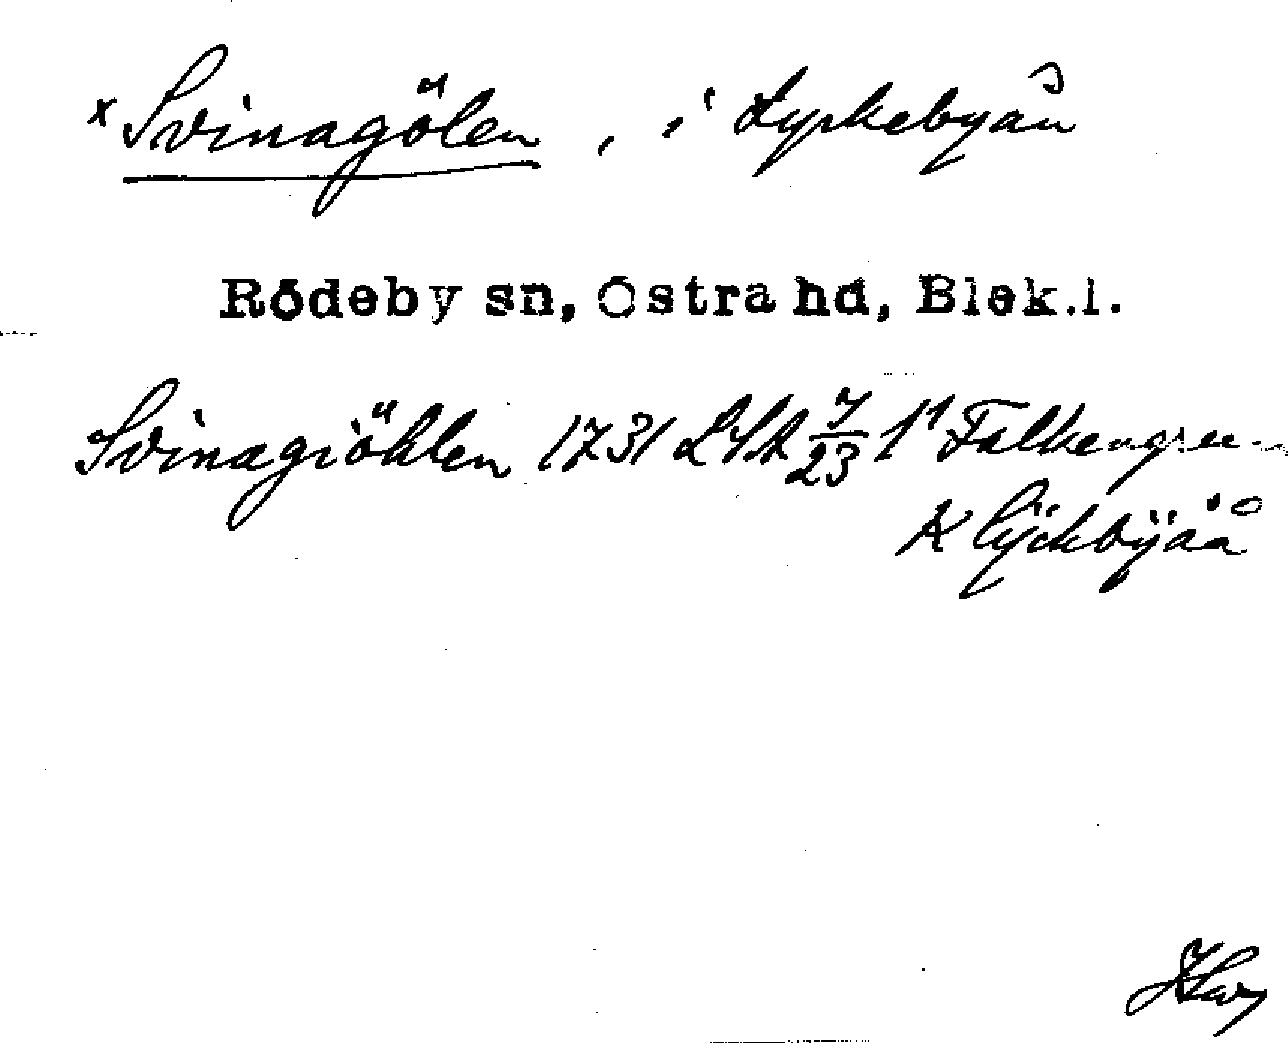 x Svinagölen, i Lyckebyån
Rödeby sn, Östra hd, Blek.l.
Svinagiöhlen 1731 LSA 7/23 1¹ Falkengreen
Lÿckbÿåå